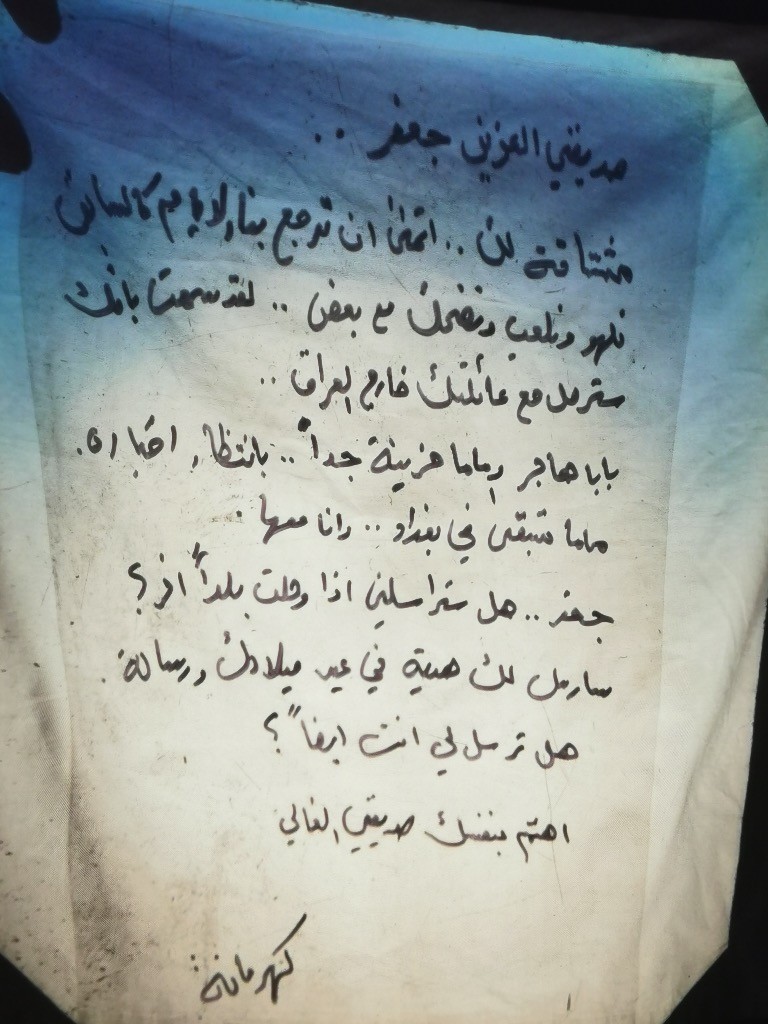 صديقي العزيز جعفر ..
مشتاقة لك .. اتمنى ان ترجع بنا الايام كالسابق
نلهو ونلعب ونضحك مع بعض .. لقد سمعت بانك
سترحل مع عائلتك خارج العراق ..
بابا هاجر وماما حزينة جداً .. بانتظار اخباره.
ماما ستبقى في بغداد .. وانا معها.
جعفر .. هل ستراسلني اذا وصلت بلداً اخر؟
سارسل لك هدية في عيد ميلادك ورسالة.
هل ترسل لي انت ايضاً؟
اهتم بنفسك صديقي الغالي
كهرمانة